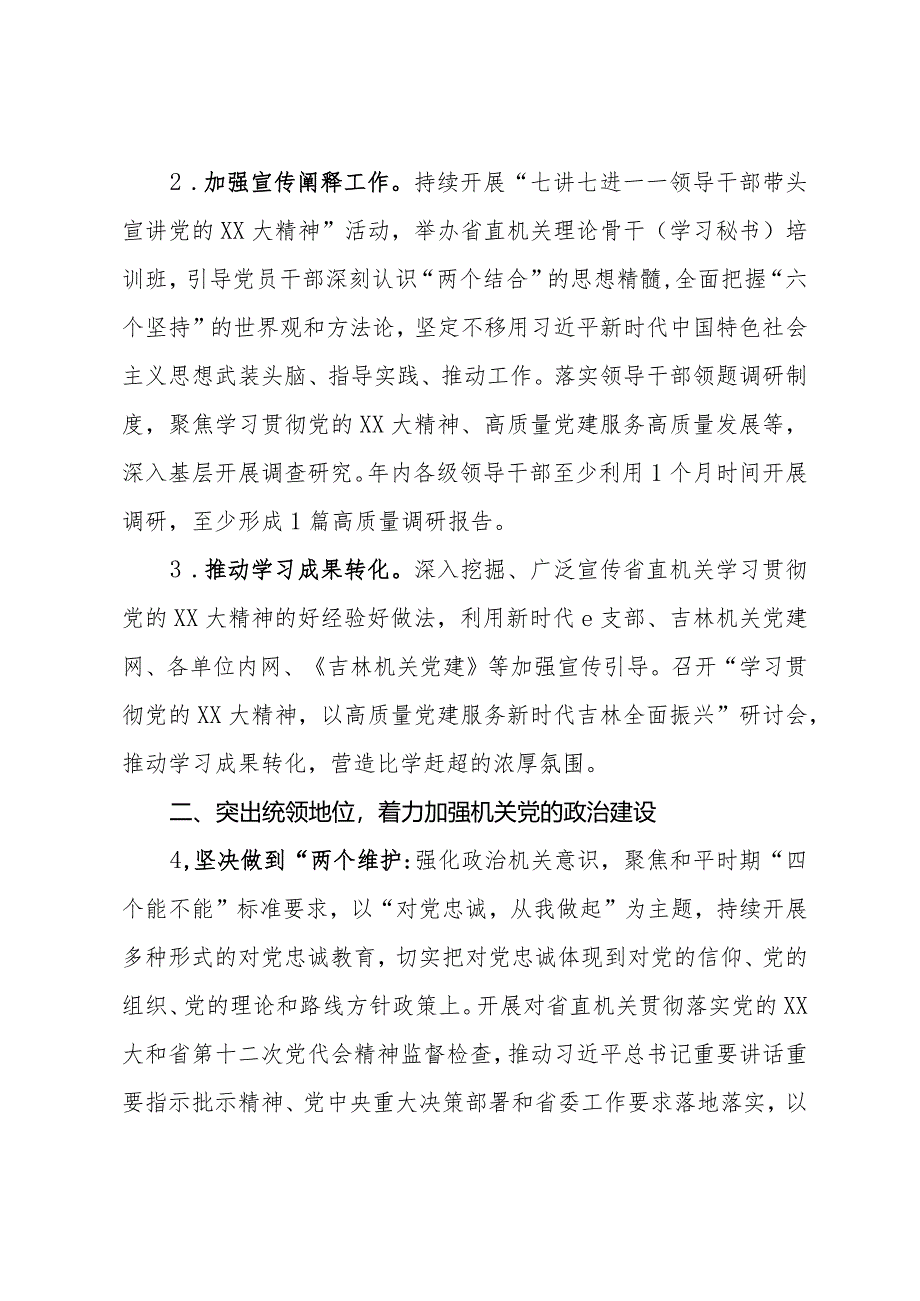 2 . 加强宣传阐释工作。持续开展“七讲七进一一领导干部带头
宣讲党的 XX 大精神”活动，举办省直机关理论骨干（学习秘书）培
训班，引导党员干部深刻认识“两个结合”的思想精髓,全面把握“六
个坚持”的世界观和方法论，坚定不移用习近平新时代中国特色社会
主义思想武装头脑、指导实践、推动工作。落实领导干部领题调研制
度，聚焦学习贯彻党的 XX 大精神、高质量党建服务高质量发展等，
深入基层开展调查研究。年内各级领导干部至少利用 1 个月时间开展
调研，至少形成 1 篇高质量调研报告。
3 . 推动学习成果转化。深入挖掘、广泛宣传省直机关学习贯彻
党的 XX 大精神的好经验好做法，利用新时代 e 支部、吉林机关党建
网、各单位内网、《吉林机关党建》等加强宣传引导。召开“学习贯
彻党的 XX 大精神，以高质量党建服务新时代吉林全面振兴”研讨会，
推动学习成果转化，营造比学赶超的浓厚氛围。
二、突出统领地位，着力加强机关党的政治建设
4,坚决做到“两个维护:强化政治机关意识，聚焦和平时期“四
个能不能”标准要求，以“对党忠诚，从我做起”为主题，持续开展
多种形式的对党忠诚教育，切实把对党忠诚体现到对党的信仰、党的
组织、党的理论和路线方针政策上。开展对省直机关贯彻落实党的 XX
大和省第十二次党代会精神监督检查，推动习近平总书记重要讲话重
要指示批示精神、党中央重大决策部署和省委工作要求落地落实，以